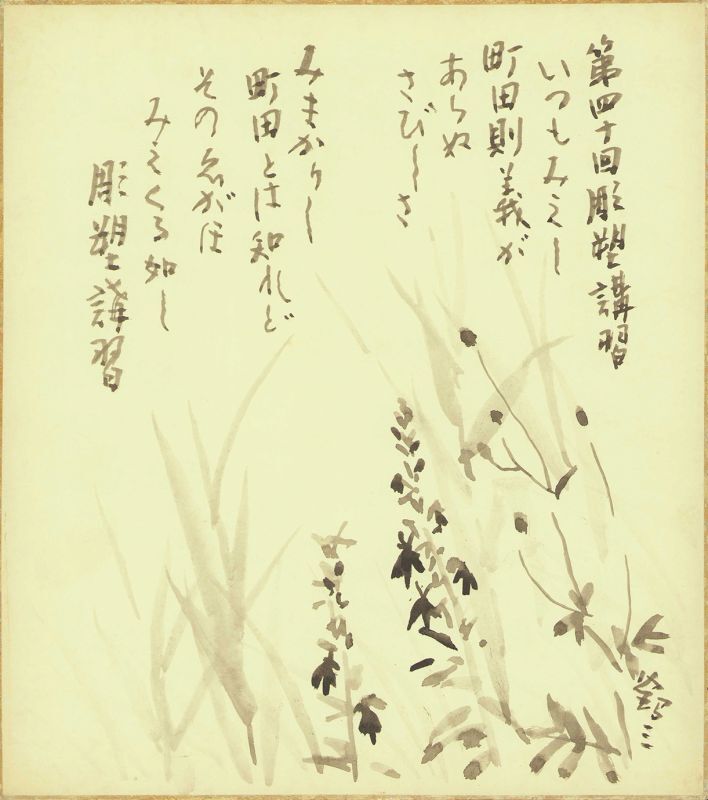 第四十回彫塑講習
いつもみえし
町田則義が
あらぬ
さびしさ
みまかりし
町田とは知れど
その名が仕
みえくる如し
彫塑講習